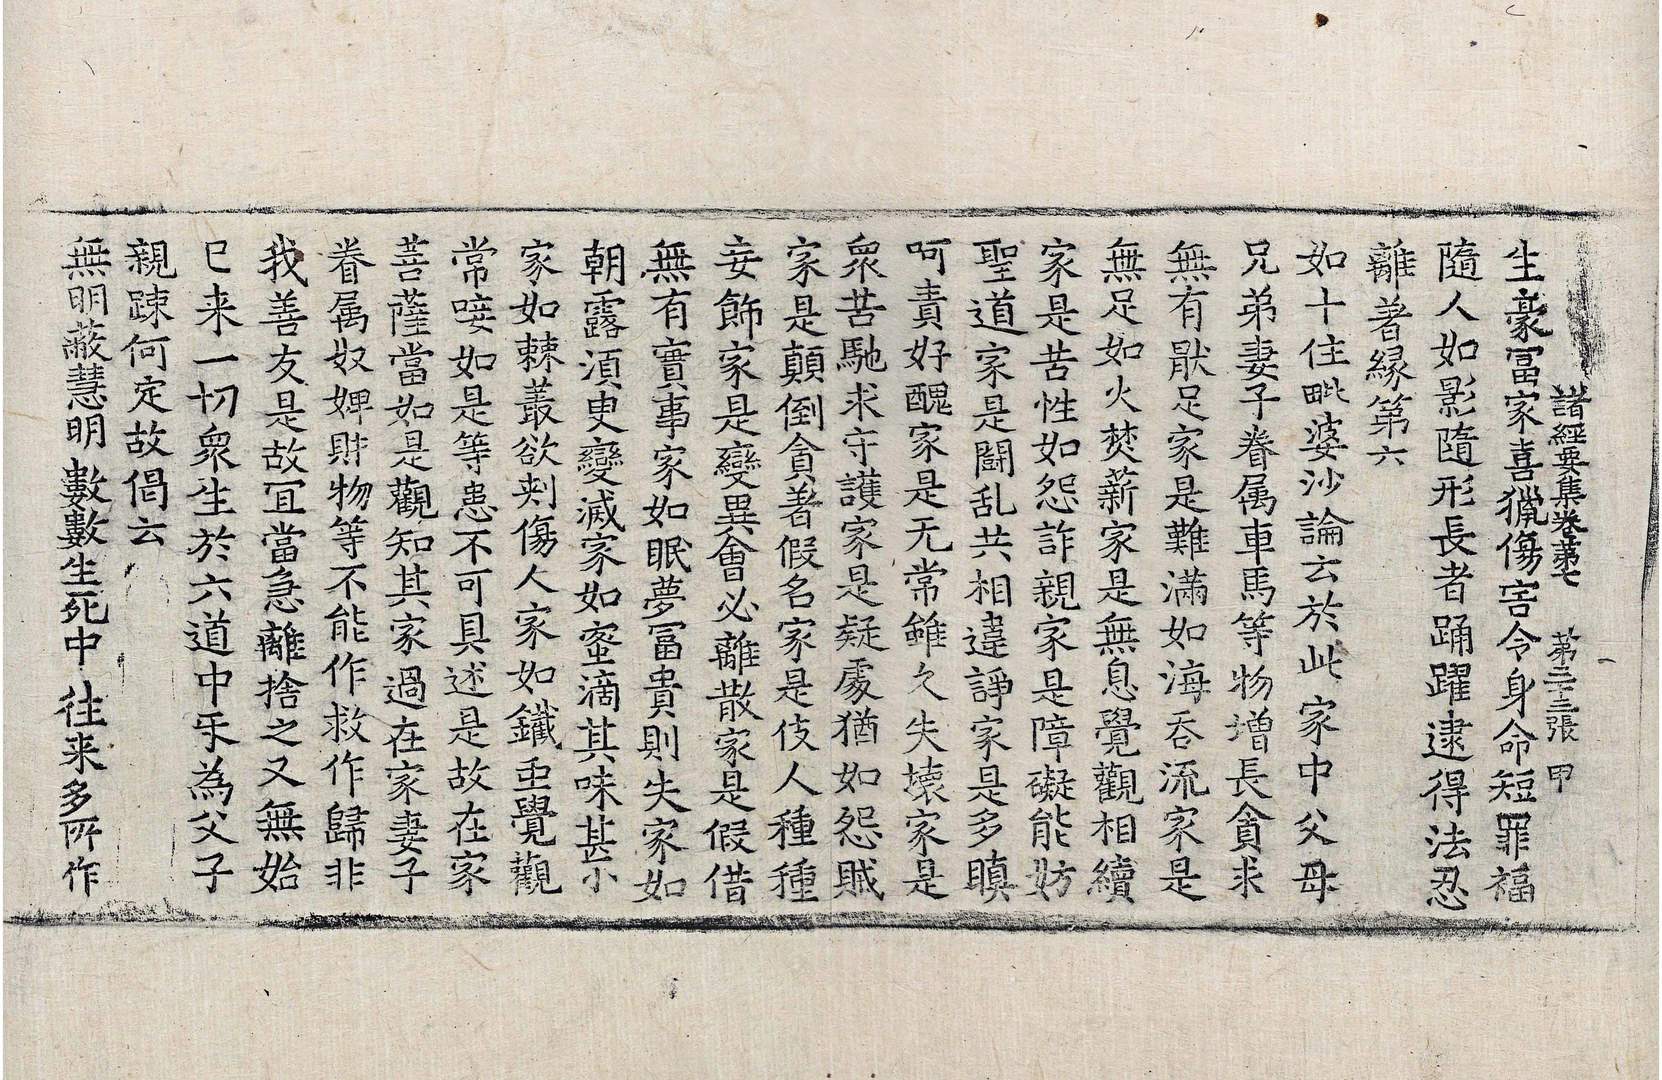 諸經要集卷第七 第二十三張 甲
生豪冨家喜獵傷害令身命短罪福
隨人如影隨形長者踊躍逮得法忍
離著縁第六
如十住毗婆沙論云於此家中父母
兄弟妻子眷属車馬等物增長貪求
無有猒足家是難滿如海吞流家是
無足如火焚薪家是無息覺觀相續
家是苦性如怨詐親家是障礙能妨
聖道家是鬪乱共相違諍家是多瞋
呵責好醜家是无常雖久失壞家是
衆苦馳求守護家是疑處猶如怨賊
家是顛倒貪著假名家是伎人種種
妄飾家是變異會必離散家是假借
無有實事家如眠夢冨貴則失家如
朝露須臾變滅家如蜜滴其味甚少
家如棘叢欲刺傷人家如鐵䖝覺觀
常唼如是等患不可具述是故在家
菩薩當如是觀知其家過在家妻子
眷属奴婢財物等不能作救作歸非
我善友是故冝當急離捨之又無始
已来一切衆生於六道中互為父子
親踈何定故偈云
無明蔽慧明 數數生死中 往来多所作